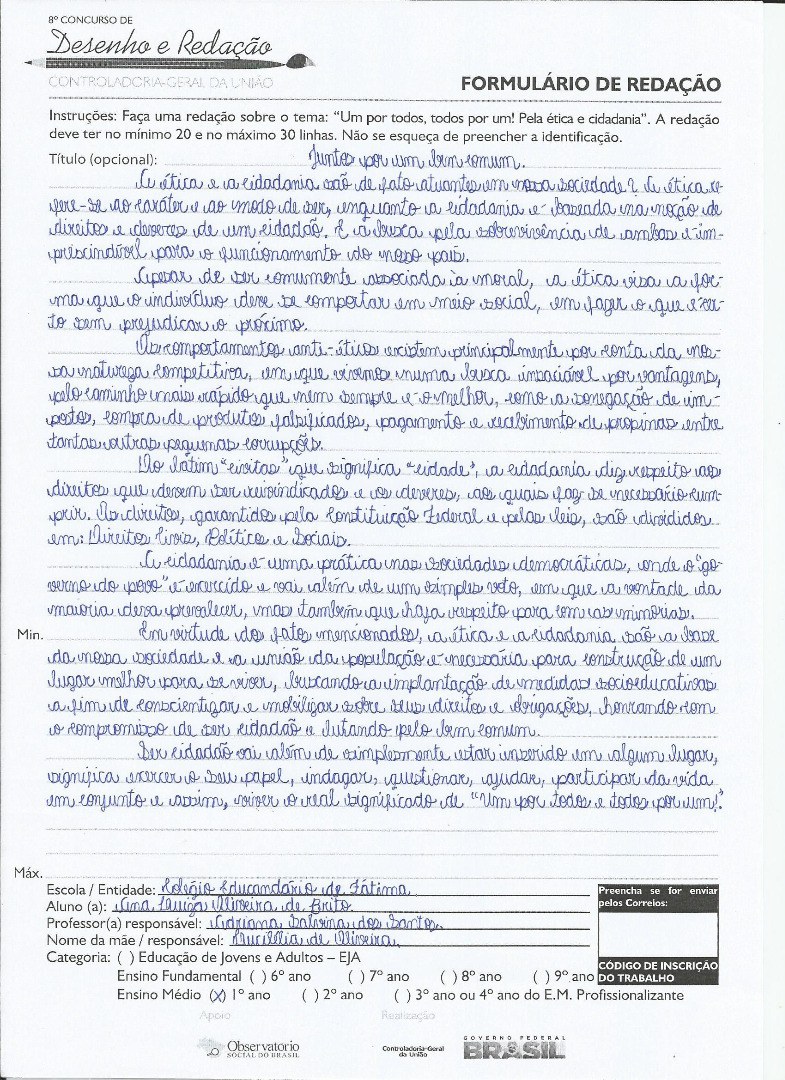 8º CONCURSO DE
Desenho e Redação
CONTROLADORIA-GERAL DA UNIÃO
FORMULÁRIO DE REDAÇÃO
Instruções: Faça uma redação sobre o tema: "Um por todos, todos por um! Pela ética e cidadania". A redação
deve ter no mínimo 20 e no máximo 30 linhas. Não se esqueça de preencher a identificação.
Título (opcional): Juntos por um bem comum.
A ética e a cidadania são de fato atuantes em nossa sociedade? A ética re-
fere-se ao caráter e ao modo de ser, enquanto a cidadania é baseada na noção de
direitos e deveres de um cidadão. E a busca pela sobrevivência de ambas é im-
prescindível para o funcionamento do nosso país.
Apesar de ser comumente associada à moral, a ética visa a for-
ma que o indivíduo deve se comportar em meio social, em fazer o que é cer-
to sem prejudicar o próximo.
Os comportamentos anti-éticos existem principalmente por conta da nos-
sa natureza competitiva, em que vivemos numa busca insaciável por vantagens,
pelo caminho mais rápido que nem sempre é o melhor, como a sonegação de im-
postos, compra de produtos falsificados, pagamento e recebimento de propinas entre
tantas outras pequenas corrupções.
Do látim "civitas" que significa "cidade", a cidadania diz respeito aos
direitos que devem ser reivindicados e os deveres, aos quais faz se necessário cum-
prir. Os direitos, garantidos pela Constituição Federal e pelas leis, são divididos
em: Direitos Civis, Políticos e Sociais.
A cidadania é uma prática nas sociedades democráticas, onde o "go-
verno do povo" é exercido e vai além de um simples voto, em que a vontade da
maioria deva prevalecer, mas também que haja respeito para com as minorias.
Min.
Em virtude dos fatos mencionados, a ética e a cidadania são a base
da nossa sociedade e a união da população é necessária para construção de um
lugar melhor para se viver, buscando a implantação de medidas socioeducativas
a fim de conscientizar e mobilizar sobre seus direitos e obrigações, honrando com
o compromisso de ser cidadão e lutando pelo bem comum.
Ser cidadão vai além de simplesmente estar inserido em algum lugar,
significa exercer o seu papel, indagar, questionar, ajudar, participar da vida
em conjunto e assim, viver o real significado de "Um por todos e todos por um!"
Máx.
Escola / Entidade: Colégio Educandário de Fátima
Aluno (a): Ana Luiza Oliveira de Brito
Professor(a) responsável: Adriana Sabrina dos Santos
Nome da mãe / responsável: de Oliveira
Preencha se for enviar
pelos Correios:
CÓDIGO DE INSCRIÇÃO
DO TRABALHO
Categoria: ( ) Educação de Jovens e Adultos – EJA
Ensino Fundamental ( ) 6º ano ( ) 7º ano ( ) 8º ano ( ) 9º ano
Ensino Médio (X) 1º ano ( ) 2º ano ( ) 3º ano ou 4º ano do E.M. Profissionalizante
Apoio
Realização
Observatorio
SOCIAL DO BRASIL
Controladoria-Geral
da União
GOVERNO FEDERAL
BRASIL